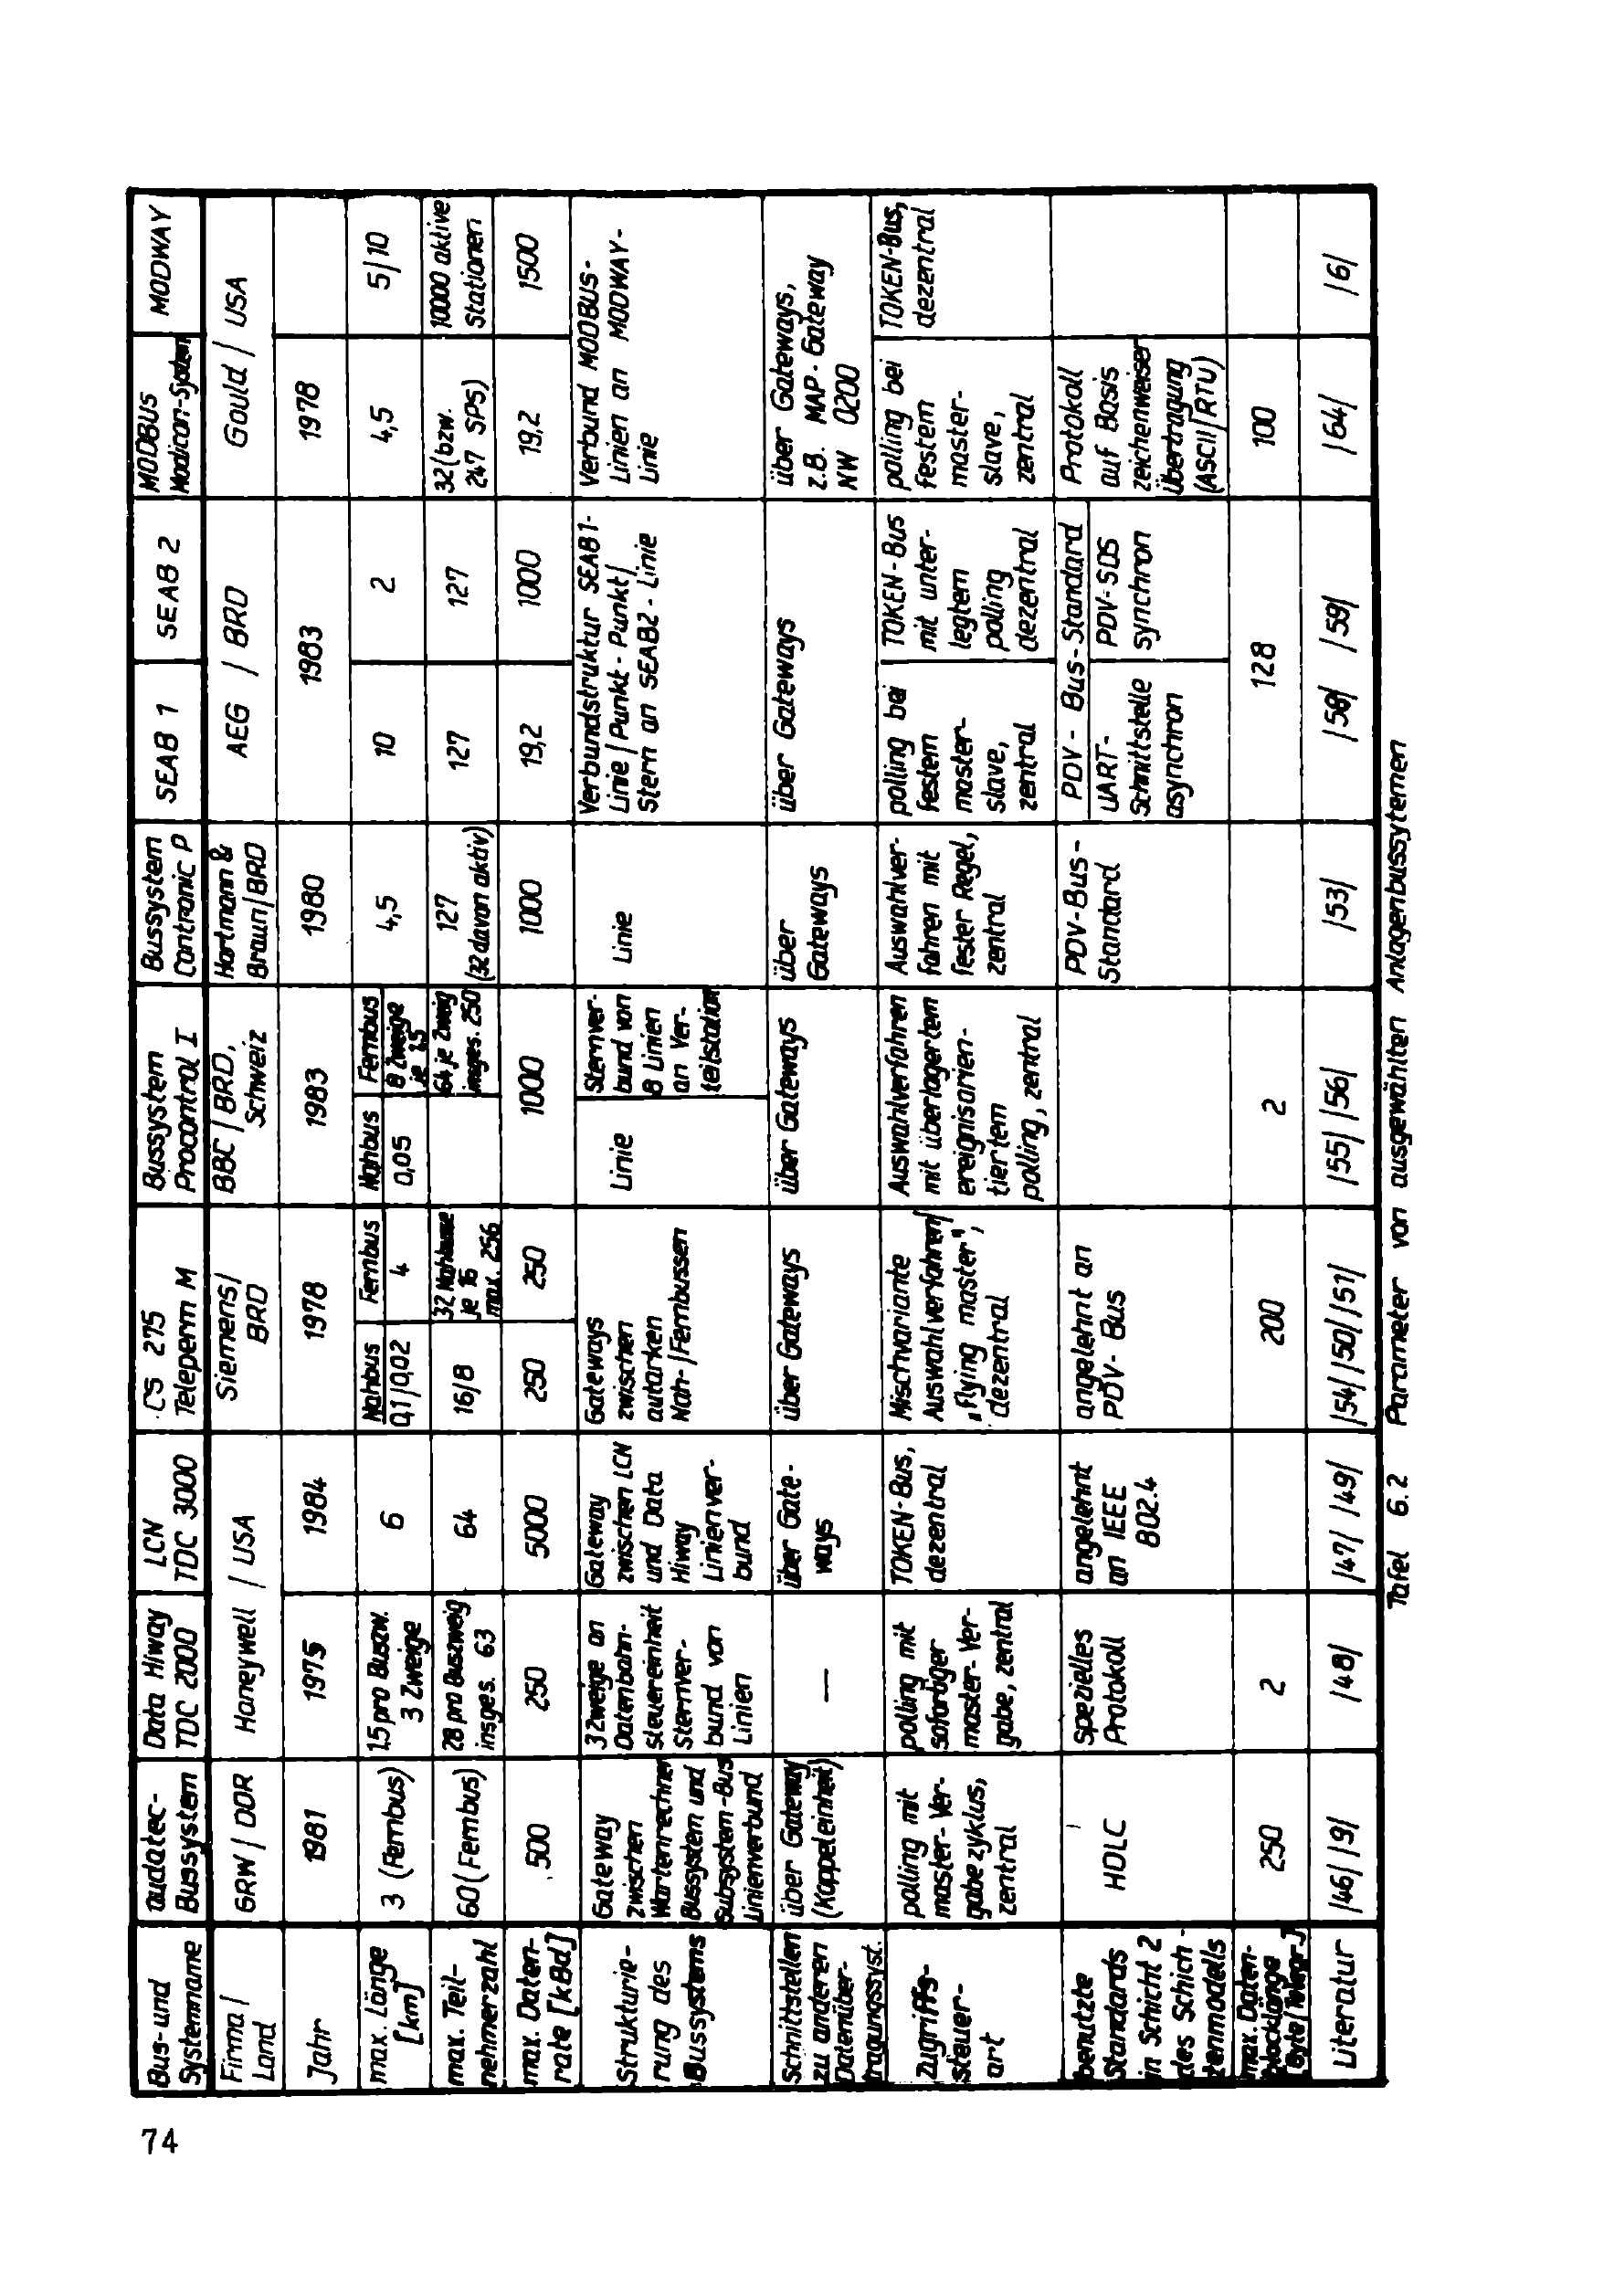 Bus- und
Systemname
audatec-
Bussystem
Data Hiway
TDC 2000
LCN
TDC 3000
CS 275
Teleperm M
Bussystem
Procontrol I
Bussystem
Contronic P
SEAB 1
SEAB 2
MODBUS
Modicon-System
MODWAY
Firma /
Land
GRW / DDR
Honeywell / USA
Siemens/
BRD
BBC / BRD,
Schweiz
Hartmann &
Braun/BRD
AEG / BRD
Gould / USA
Jahr
1981
1975
1984
1978
1983
1980
1983
1978
max. Länge
[km]
3 (Fernbus)
1,5 pro Buszw.
3 Zweige
6
Nahbus
0,1/0,02
Fernbus
4
Nahbus
0,05
Fernbus
8 Zweige
je 1,5
4,5
10
2
4,5
5/10
max. Teil-
nehmerzahl
60(Fernbus)
28 pro Buszweig
insges. 63
64
16/8
32 Nahbusse
je 16
max. 256
64 je Zweig
insges. 250
127
(32 davon aktiv)
127
127
32 (bzw.
247 SPS)
10000 aktive
Stationen
max. Daten-
rate [kBd]
500
250
5000
250
250
1000
1000
19,2
1000
19,2
1500
Strukturie-
rung des
Bussystems
Gateway
zwischen
Wartenrechner
Bussystem und
Subsystem-Bus
Linienverbund
3 Zweige an
Datenbahn-
steuereinheit
Sternver-
bund von
Linien
Gateway
zwischen LCN
und Data
Hiway
Linienver-
bund
Gateways
zwischen
autarken
Nah-/Fernbussen
Linie
Sternver-
bund von
8 Linien
an Ver-
teilstation
Linie
Verbundstruktur SEAB1-
Linie / Punkt-Punkt /
Stern an SEAB2-Linie
Verbund MODBUS-
Linien an MODWAY-
Linie
Schnittstellen
zu anderen
Datenüber-
tragungssyst.
über Gateway
(Koppeleinheit)
—
über Gate-
ways
über Gateways
über Gateways
über
Gateways
über Gateways
über Gateways,
z.B. MAP-Gateway
NW 0200
Zugriffs-
steuer-
art
polling mit
master-Ver-
gabezyklus,
zentral
polling mit
sofortiger
master-Ver-
gabe, zentral
TOKEN-Bus,
dezentral
Mischvariante
Auswahlverfahren/
„flying master",
dezentral
Auswahlverfahren
mit überlagertem
ereignisorien-
tiertem
polling, zentral
Auswahlver-
fahren mit
fester Regel,
zentral
polling bei
festem
master-
slave,
zentral
TOKEN-Bus
mit unter-
legtem
polling
dezentral
polling bei
festem
master-
slave,
zentral
TOKEN-Bus,
dezentral
benutzte
Standards
in Schicht 2
des Schich-
tenmodells
HDLC
spezielles
Protokoll
angelehnt
an IEEE
802.4
angelehnt an
PDV-Bus
PDV-Bus-
Standard
PDV-Bus-Standard
UART-
Schnittstelle
asynchron
PDV-SDS
synchron
Protokoll
auf Basis
zeichenweiser
Übertragung
(ASCII/RTU)
max. Daten-
blocklänge
[Byte/Telegr.]
250
2
200
2
128
100
Literatur
/46/ /9/
/48/
/47/ /49/
/54/ /50/ /51/
/55/ /56/
/53/
/58/ /59/
/64/
/6/
Tafel 6.2 Parameter von ausgewählten Anlagenbussytemen
74